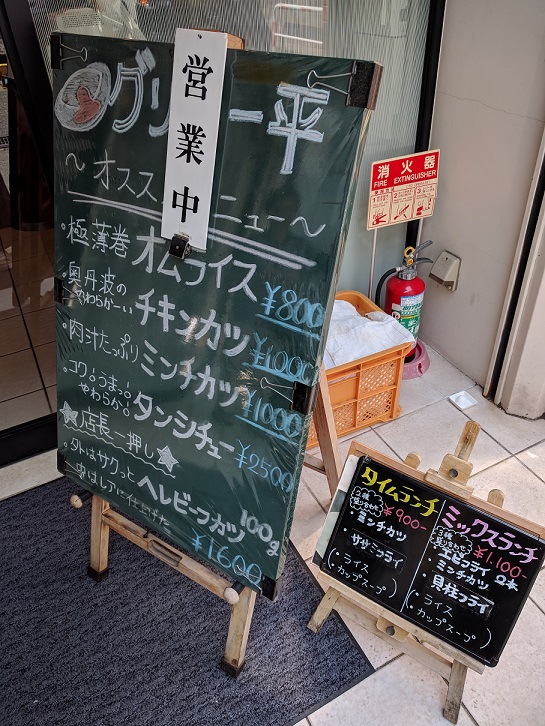 グリ 一平
営業中
～オススメ ニュー～
・極薄巻 オムライス ¥800
・奥丹波の やわらか〜い チキンカツ ¥1000
・肉汁たっぷり ミンチカツ ¥1000
・コク！うまっ！ やわらか！ タンシチュー ¥2500
★店長一押し★
・外はサクっと 中はレアに仕上げた ヘレビーフカツ 100g
¥1600
消火器
FIRE EXTINGUISHER
タイムランチ
2種盛り合わせ ¥900-
・ミンチカツ
・ササミフライ
(ライス
カップスープ)
ミックスランチ
3種盛り合わせ ¥1,100-
・エビフライ 2本
・ミンチカツ
・貝柱フライ
(ライス
カップスープ)